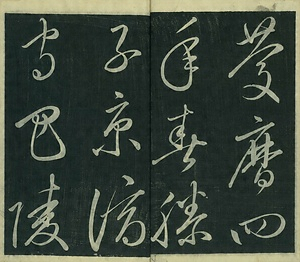 慶曆四
年春滕
子京謫
守巴陵